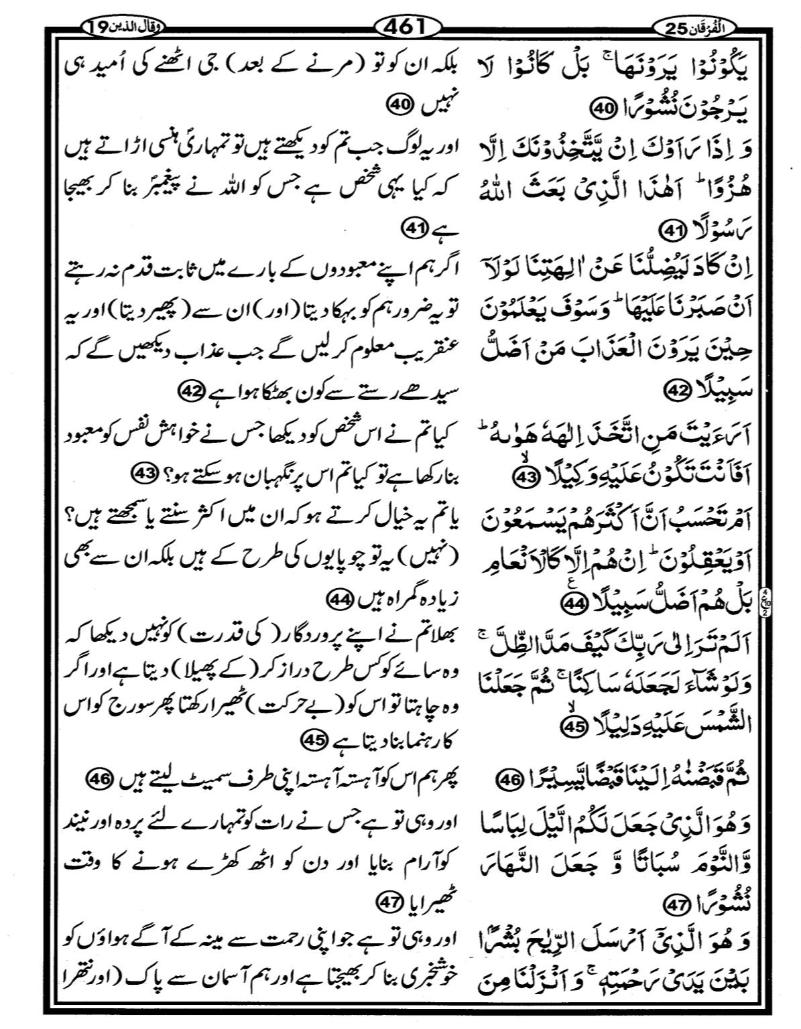 الفرقان 25
461
وقال الذین 19
یَکُوۡنُوۡا یَرَوۡنَہَا ۚ بَلۡ کَانُوۡا لَا
یَرۡجُوۡنَ نُشُوۡرًا 40
وَ اِذَا رَاَوۡکَ اِنۡ یَّتَّخِذُوۡنَکَ اِلَّا
ہُزُوًا ؕ اَہٰذَا الَّذِیۡ بَعَثَ اللّٰہُ
رَسُوۡلًا 41
اِنۡ کَادَ لَیُضِلُّنَا عَنۡ اٰلِہَتِنَا لَوۡلَاۤ
اَنۡ صَبَرۡنَا عَلَیۡہَا ؕ وَسَوۡفَ یَعۡلَمُوۡنَ
حِیۡنَ یَرَوۡنَ الۡعَذَابَ مَنۡ اَضَلُّ
سَبِیۡلًا 42
اَرَءَیۡتَ مَنِ اتَّخَذَ اِلٰہَہٗ ہَوٰىہُ ؕ
اَفَاَنۡتَ تَکُوۡنُ عَلَیۡہِ وَکِیۡلًا ۙ 43
اَمۡ تَحۡسَبُ اَنَّ اَکۡثَرَہُمۡ یَسۡمَعُوۡنَ
اَوۡ یَعۡقِلُوۡنَ ؕ اِنۡ ہُمۡ اِلَّا کَالۡاَنۡعَامِ
بَلۡ ہُمۡ اَضَلُّ سَبِیۡلًا 44 ع
اَلَمۡ تَرَ اِلٰی رَبِّکَ کَیۡفَ مَدَّ الظِّلَّ ۚ
وَلَوۡ شَآءَ لَجَعَلَہٗ سَاکِنًا ۚ ثُمَّ جَعَلۡنَا
الشَّمۡسَ عَلَیۡہِ دَلِیۡلًا ۙ 45
ثُمَّ قَبَضۡنٰہُ اِلَیۡنَا قَبۡضًا یَّسِیۡرًا 46
وَ ہُوَ الَّذِیۡ جَعَلَ لَکُمُ الَّیۡلَ لِبَاسًا
وَّالنَّوۡمَ سُبَاتًا وَّ جَعَلَ النَّہَارَ
نُشُوۡرًا 47
وَ ہُوَ الَّذِیۡۤ اَرۡسَلَ الرِّیٰحَ بُشۡرًۢا
بَیۡنَ یَدَیۡ رَحۡمَتِہٖ ۚ وَ اَنۡزَلۡنَا مِنَ
بلکہ ان کو تو (مرنے کے بعد) جی اٹھنے کی اُمید ہی
نہیں 40
اور یہ لوگ جب تم کو دیکھتے ہیں تو تمہاری ہنسی اڑاتے ہیں
کہ کیا یہی شخص ہے جس کو اللہ نے پیغمبر بنا کر بھیجا
ہے 41
اگر ہم اپنے معبودوں کے بارے میں ثابت قدم نہ رہتے
تو یہ ضرور ہم کو بہکا دیتا (اور) ان سے (پھیر دیتا) اور یہ
عنقریب معلوم کرلیں گے جب عذاب دیکھیں گے کہ
سیدھے رستے سے کون بھٹکا ہوا ہے 42
کیا تم نے اس شخص کو دیکھا جس نے خواہش نفس کو معبود
بنا رکھا ہے تو کیا تم اس پر نگہبان ہو سکتے ہو؟ 43
یا تم یہ خیال کرتے ہو کہ ان میں اکثر سنتے یا سمجھتے ہیں؟
(نہیں) یہ تو چوپایوں کی طرح کے ہیں بلکہ ان سے بھی
زیادہ گمراہ ہیں 44
بھلا تم نے اپنے پروردگار (کی قدرت) کو نہیں دیکھا کہ
وہ سائے کو کس طرح دراز کر (کے پھیلا) دیتا ہے اور اگر
وہ چاہتا تو اس کو (بے حرکت) ٹھیرا رکھتا پھر سورج کو اس
کا رہنما بنا دیتا ہے 45
پھر ہم اس کو آہستہ آہستہ اپنی طرف سمیٹ لیتے ہیں 46
اور وہی تو ہے جس نے رات کو تمہارے لئے پردہ اور نیند
کو آرام بنایا اور دن کو اٹھ کھڑے ہونے کا وقت
ٹھیرایا 47
اور وہی تو ہے جو اپنی رحمت سے مینہ کے آگے ہواؤں کو
خوشخبری بنا کر بھیجتا ہے اور ہم آسمان سے پاک (اور نتھرا